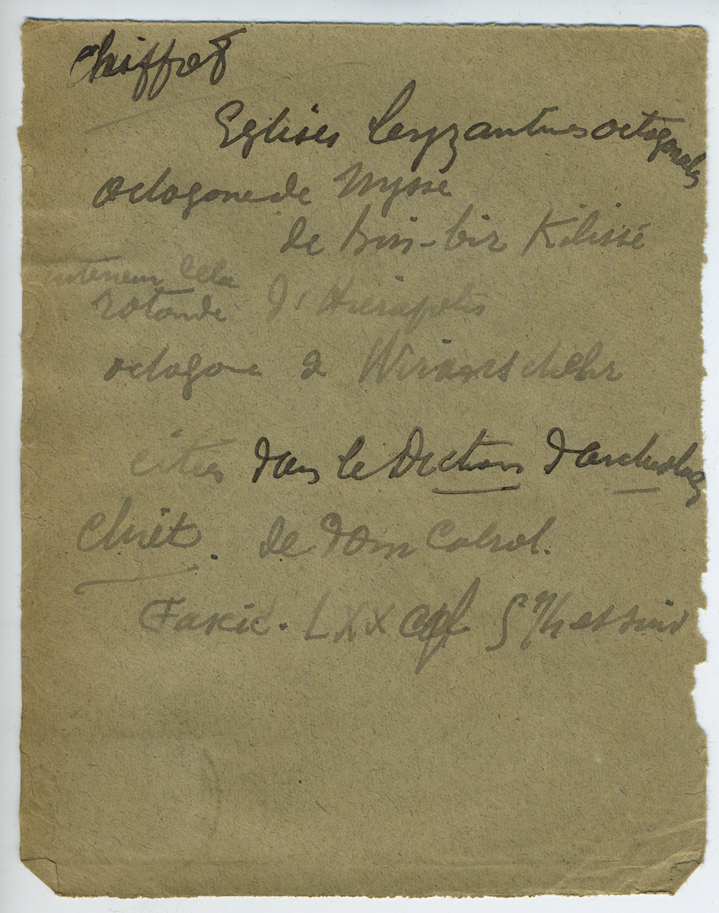 chiffret
Eglises byzantines octogonales
octogone de Nysse
de bin-bir Kilissé
interieur de la
rotonde d'Hierapolis
octogone de Wiranschehr
citées dans le Diction d'archeolog
Chrét. de dom Cabrol.
Fascic. LXX